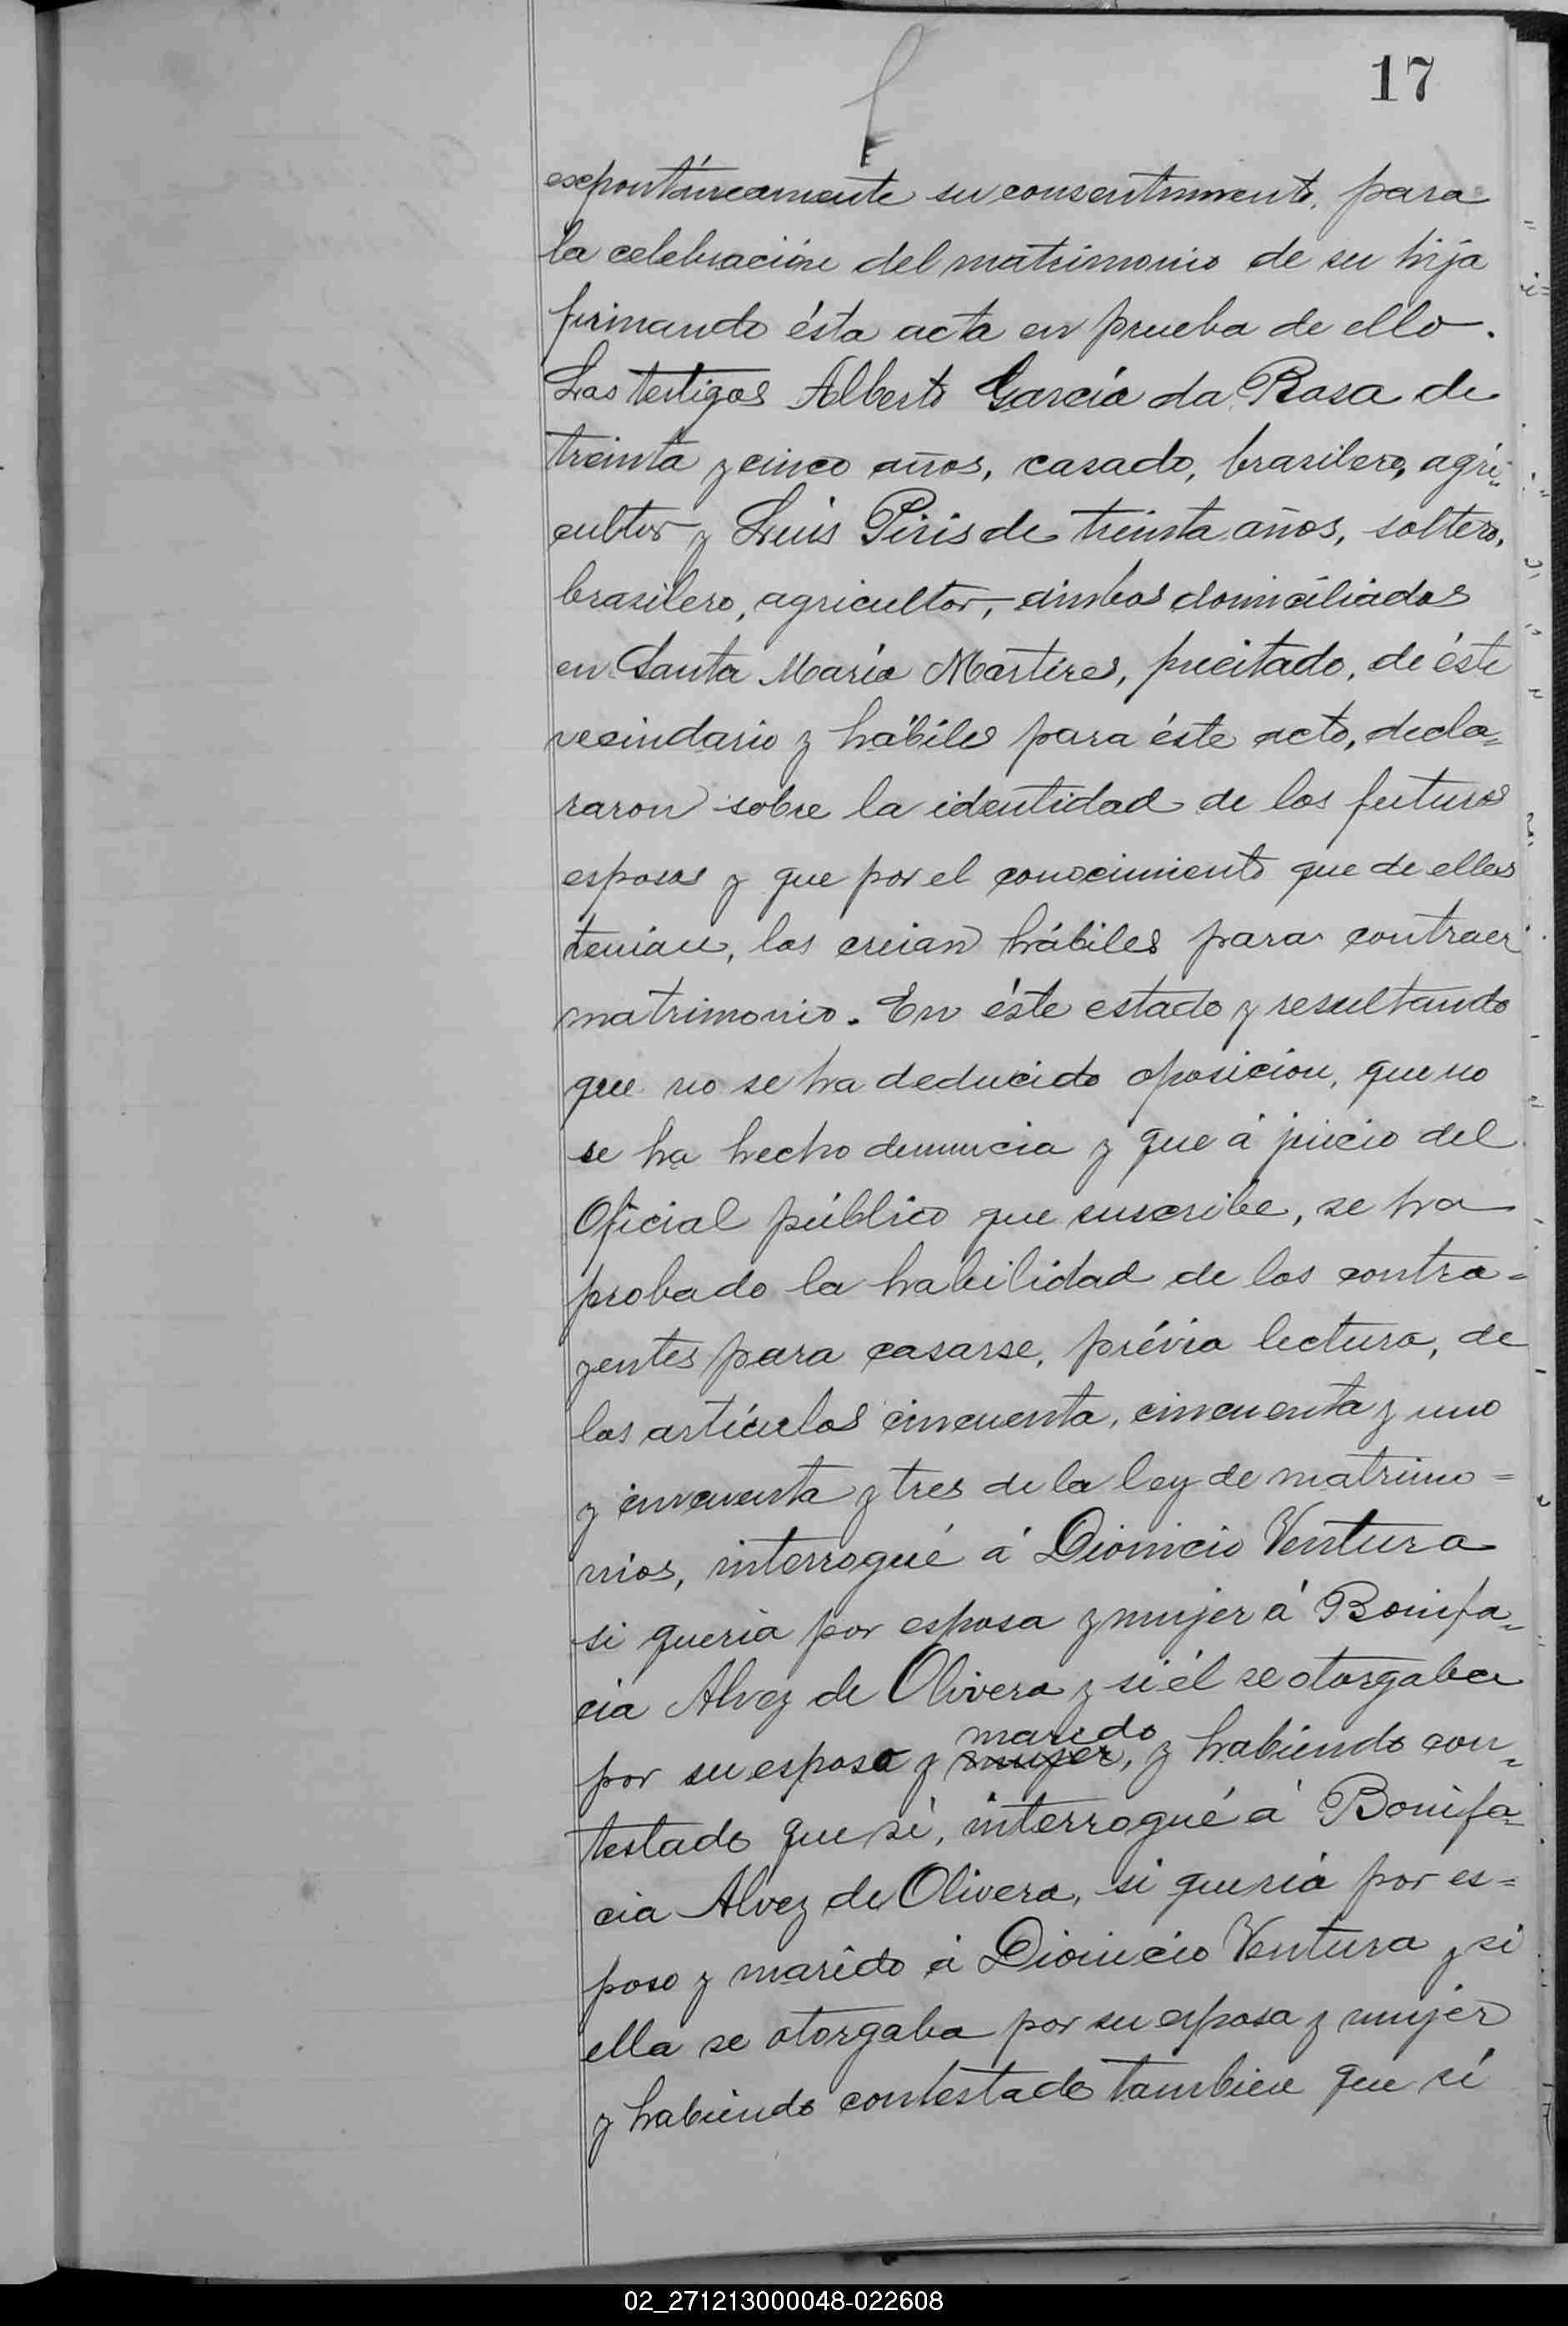 17
expontáneamente su consentimiento, para
la celebración del matrimonio de su hija
firmando ésta acta en prueba de ello.
Los testigos Alberto García da Rosa de
treinta y cinco años, casado, brasilero, agri-
cultor y Luis Piris de treinta años, soltero,
brasilero, agricultor, ambos domiciliados
en Santa María Martires, precitado, de éste
vecindario y hábiles para éste acto, decla=
raron sobre la identidad de los futuros
esposos y que por el conocimiento que de ellos
tenian, los creian hábiles para contraer
matrimonio. En éste estado y resultando
que no se ha deducido oposicion, que no
se ha hecho denuncia y que á juicio del
Oficial público que suscribe, se ha
probado la habilidad de los contra=
yentes para casarse, prévia lectura, de
los artículos cincuenta, cincuenta y uno
y cincuenta y tres de la ley de matrimo=
nios, interrogué á Dionicio Ventura
si queria por esposa y mujer á Bonifa=
cia Alvez de Olivera y si él se otorgaba
marido
por su esposo y mujer, y habiendo con=
testado que sí, interrogué á Bonifa=
cia Alvez de Olivera, si queria por es=
poso y marido á Dionicio Ventura y si
ella se otorgaba por su esposa y mujer
y habiendo contestado tambien que sí
02_271213000048-022608